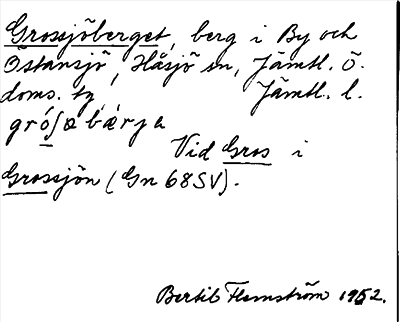 Grossjöberget, berg i By och
Östansjö, Håsjö sn, Jämtl. Ö.
doms. tg, Jämtl. l.
gróʃæbǽrja
Vid Gros i
Grossjön (Gn 68SV).
Bertil Flemström 1952.